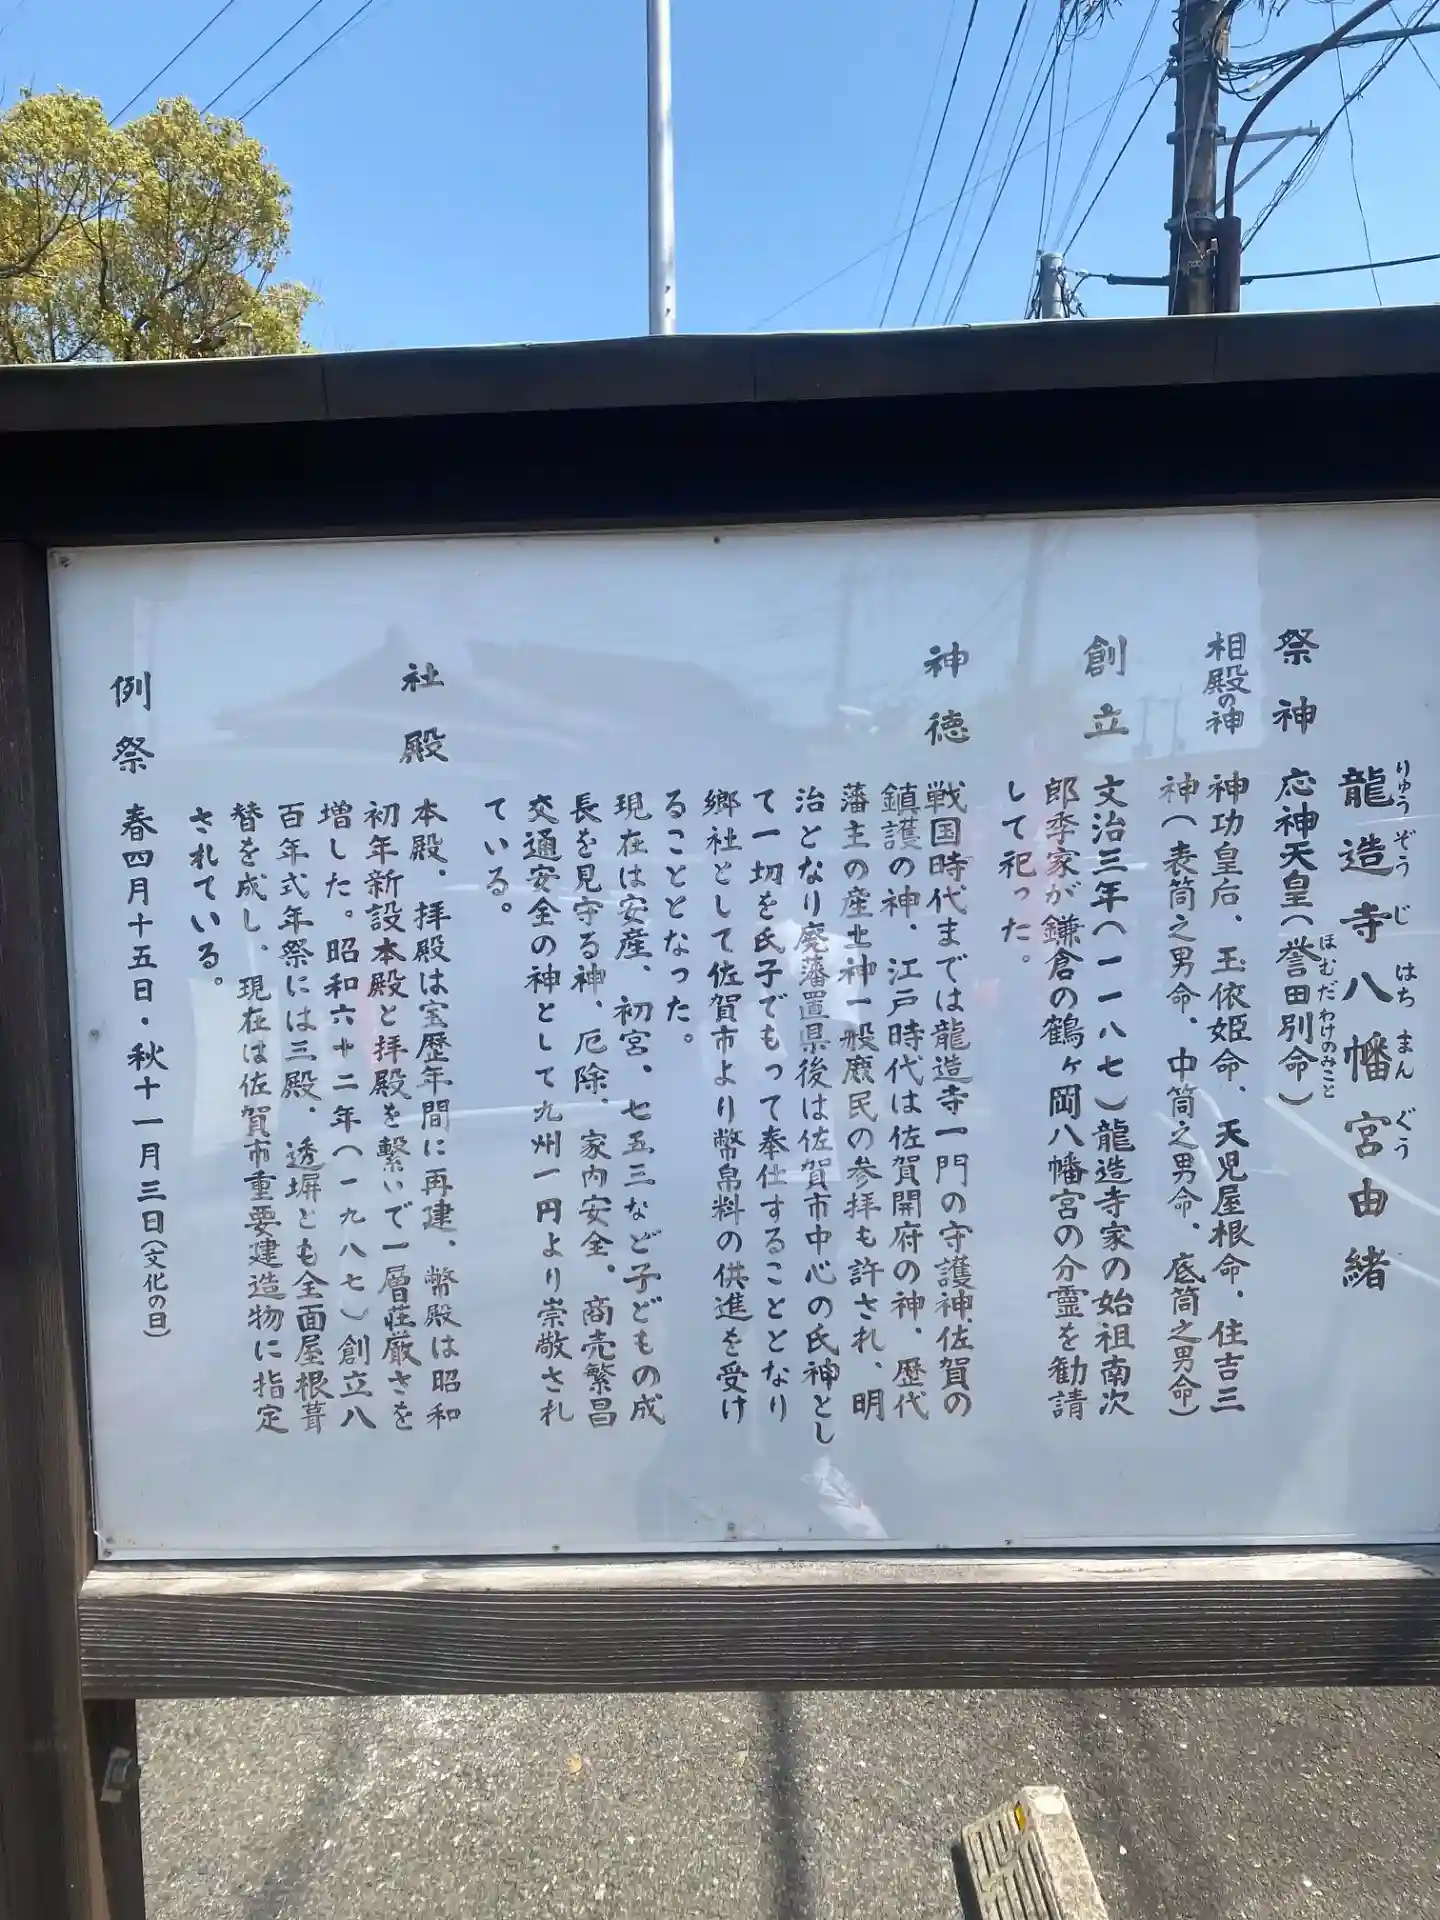 龍造寺八幡宮由緒
りゅうぞうじはちまんぐう
祭神
応神天皇(誉田別命)
ほむだわけのみこと
相殿の神
神功皇后、玉依姫命、天児屋根命、住吉三
神(表筒之男命、中筒之男命、底筒之男命)
創立
文治三年(一一八七)龍造寺家の始祖南次
郎季家が鎌倉の鶴ヶ岡八幡宮の分霊を勧請
して祀った。
神徳
戦国時代までは龍造寺一門の守護神、佐賀の
鎮護の神、江戸時代は佐賀開府の神、歴代
藩主の産土神一般庶民の参拝も許され、明
治となり廃藩置県後は佐賀市中心の氏神とし
て一切を氏子でもって奉仕することとなり
郷社として佐賀市より幣帛料の供進を受け
ることとなった。
現在は安産、初宮、七五三など子どもの成
長を見守る神、厄除、家内安全、商売繁昌
交通安全の神として九州一円より崇敬され
ている。
社殿
本殿、拝殿は宝歴年間に再建、幣殿は昭和
初年新設本殿と拝殿を繋いで一層荘厳さを
増した。昭和六十二年(一九八七)創立八
百年式年祭には三殿、透塀とも全面屋根葺
替を成し、現在は佐賀市重要建造物に指定
されている。
例祭
春四月十五日・秋十一月三日(文化の日)